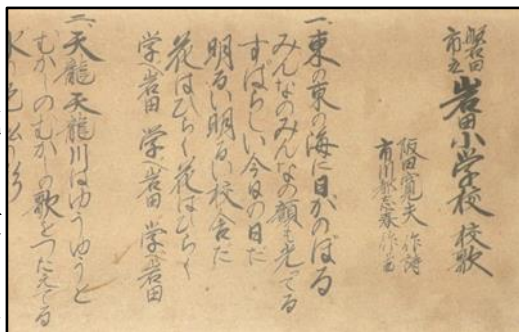 磐田市立 岩田小学校 校歌
阪田寛夫 作詩
市川都志春 作曲
一、東の東の海に日がのぼる
みんなのみんなの顔も光ってる
すばらしい今日の日だ
明るい明るい校舎だ
花はひらく花はひらく
学べ岩田 学べ岩田 学べ岩田
二、天龍天龍川はゆうゆうと
むかしのむかしの歌をつたえてる